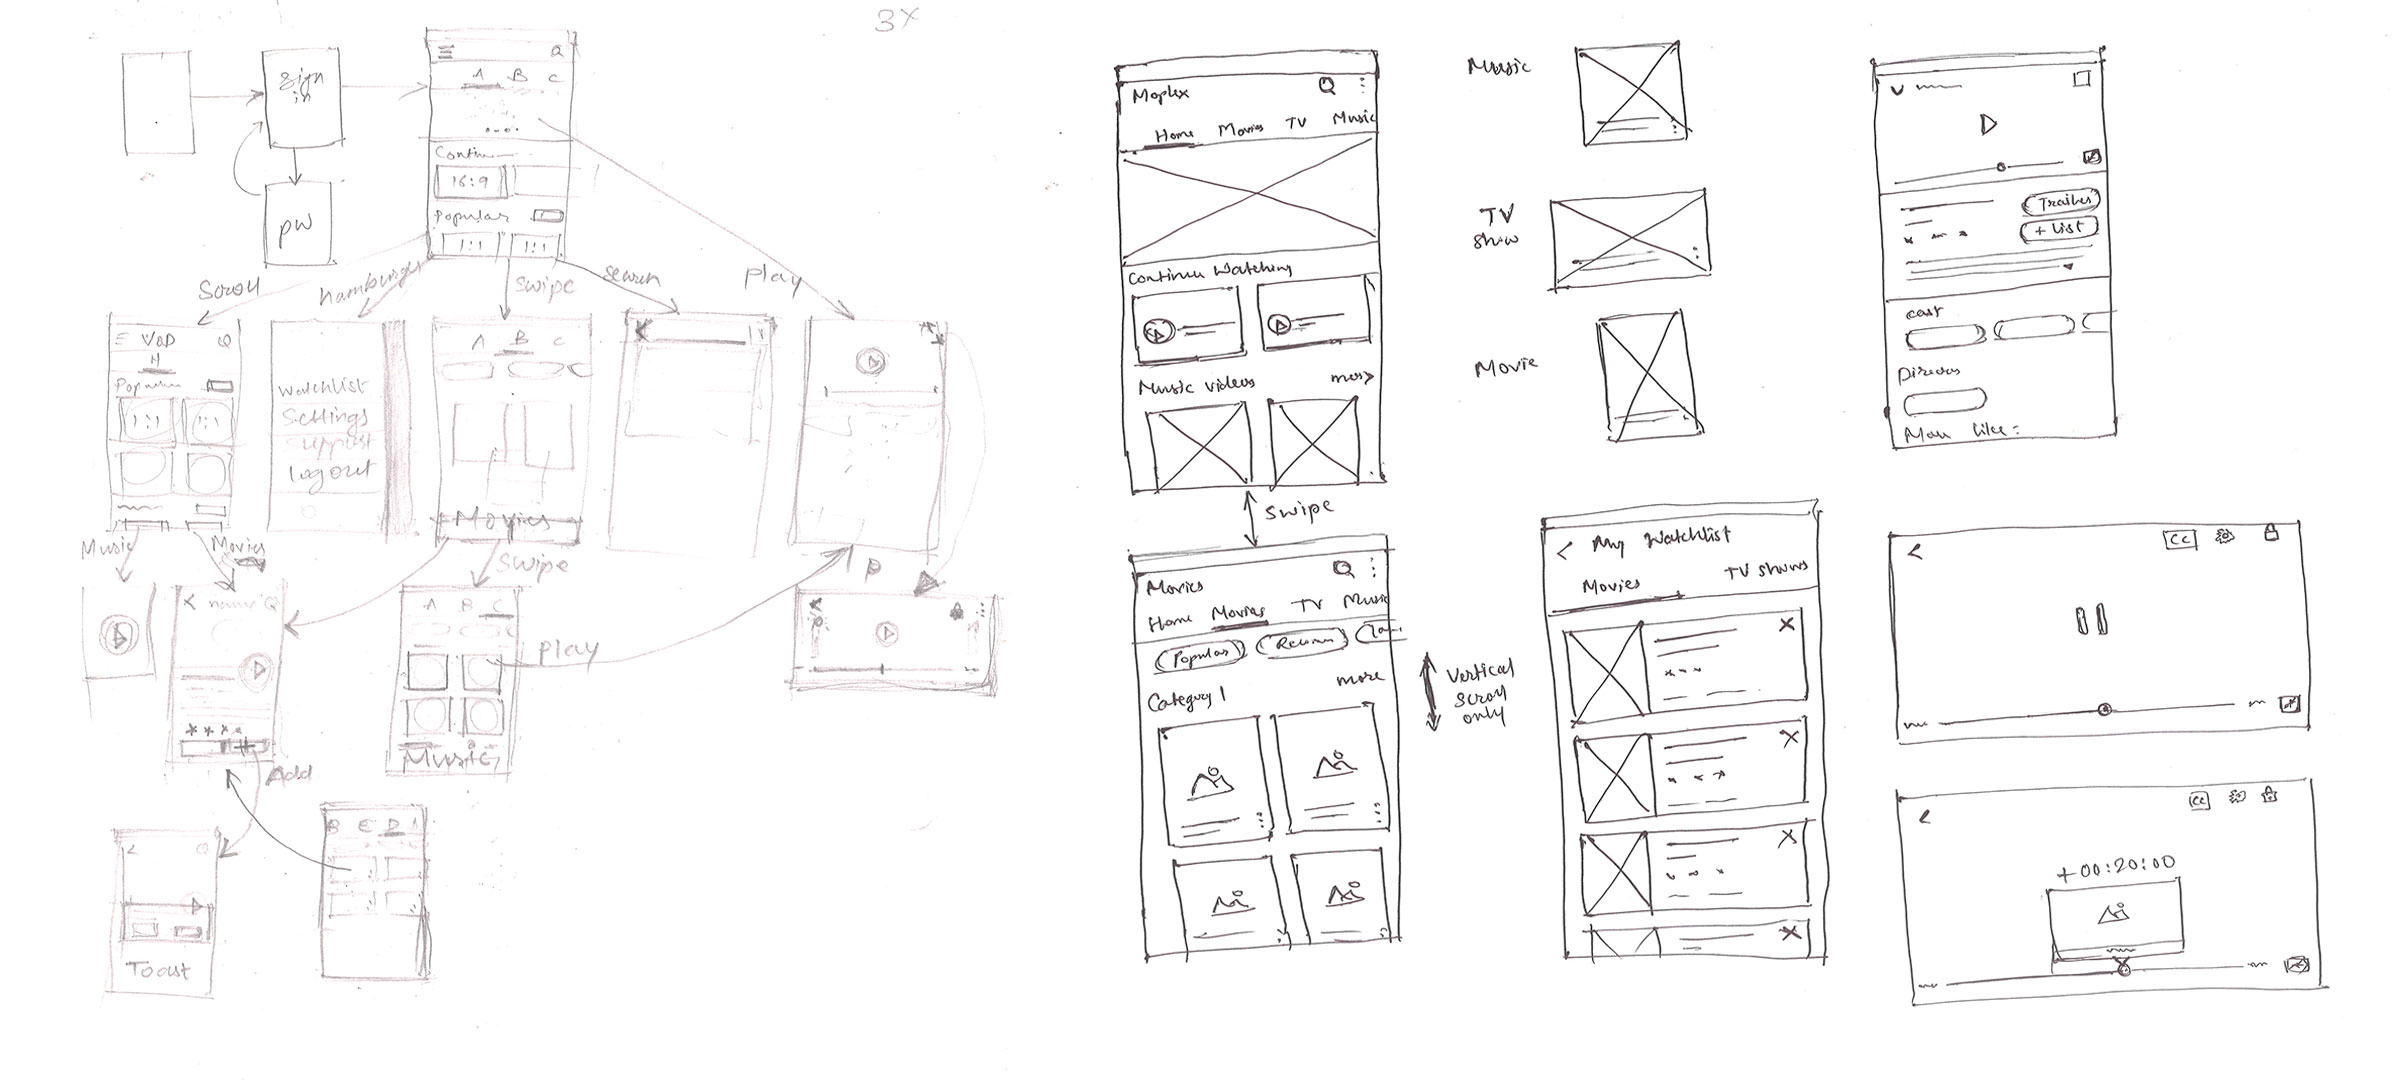 3X
sign
in
pw
A B C
Contin
16:9
Popular
1:1 1:1
Scroll
hamburger
swipe
search
play
VOD
H
Popular
1:1 1:1
Music
Movies
Watchlist
Settings
Support
Logout
A B C
Movies
Swipe
P
name
Add
A B C
Music
play
Toast
B E D A
Moplex
Home Movies TV Music
Continue Watching
Music videos more
swipe
Movies
Home Movies TV Music
Popular Recomm
Category 1 more
Vertical
scroll
only
Music
TV
show
Movie
My Watchlist
Movies TV shows
Trailer
+ List
cast
Director
More like:
CC
CC
+00:20:00